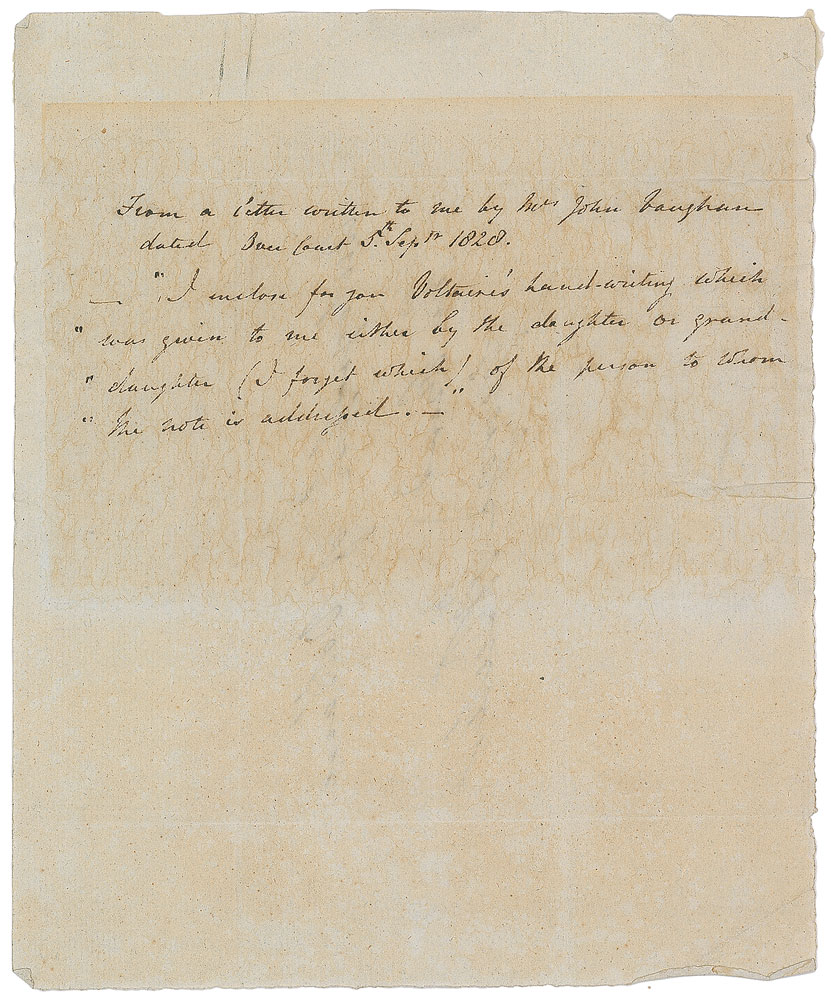 From a letter written to me by Mrs John Vaughan
dated Over Court 5.th Sepr 1828.
— ". I inclose for you Voltaire's hand-writing which
" was given to me either by the daughter or grand-
" daughter (I forget which) of the person to whom
" the note is addressed. — "